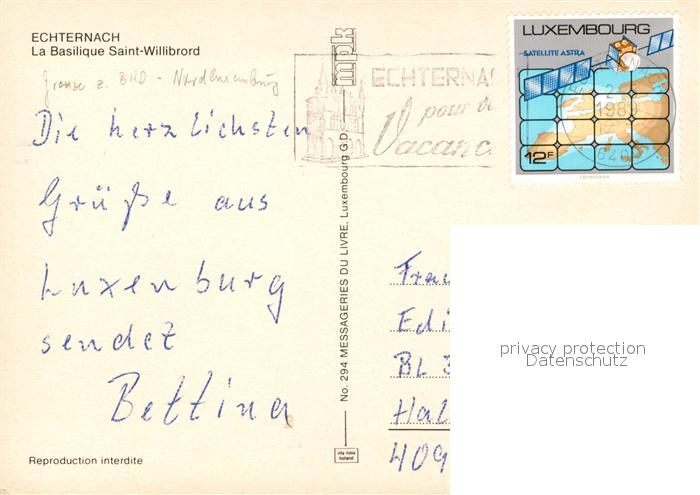 ECHTERNACH
La Basilique Saint-Willibrord
Grenze z. BRD - Nordluxemburg
Die herzlichsten
Grüße aus
Luxenburg
sendet
Bettina
Reproduction interdite
mpk
No. 294 MESSAGERIES DU LIVRE, Luxembourg G.D.
vita nova
holland
ECHTERNA
pour vo
Vacanc
LUXEMBOURG
SATELLITE ASTRA
12F
1989
COURVOISIER
Frau
Edi
BL 3
Hal
409
privacy protection
Datenschutz